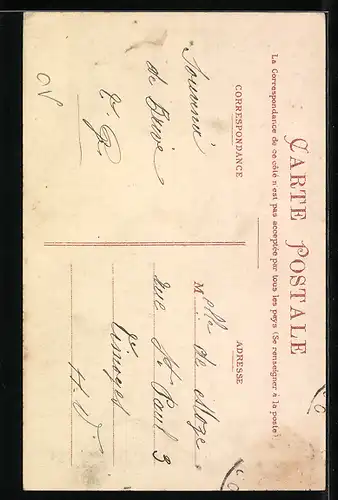 CARTE POSTALE
La Correspondance de ce côté n'est pas acceptée par tous les pays (Se renseigner à la poste).
CORRESPONDANCE
Souvenir
de Brive
ADRESSE
Melle de
rue St Paul 3
Limoges
H. V.